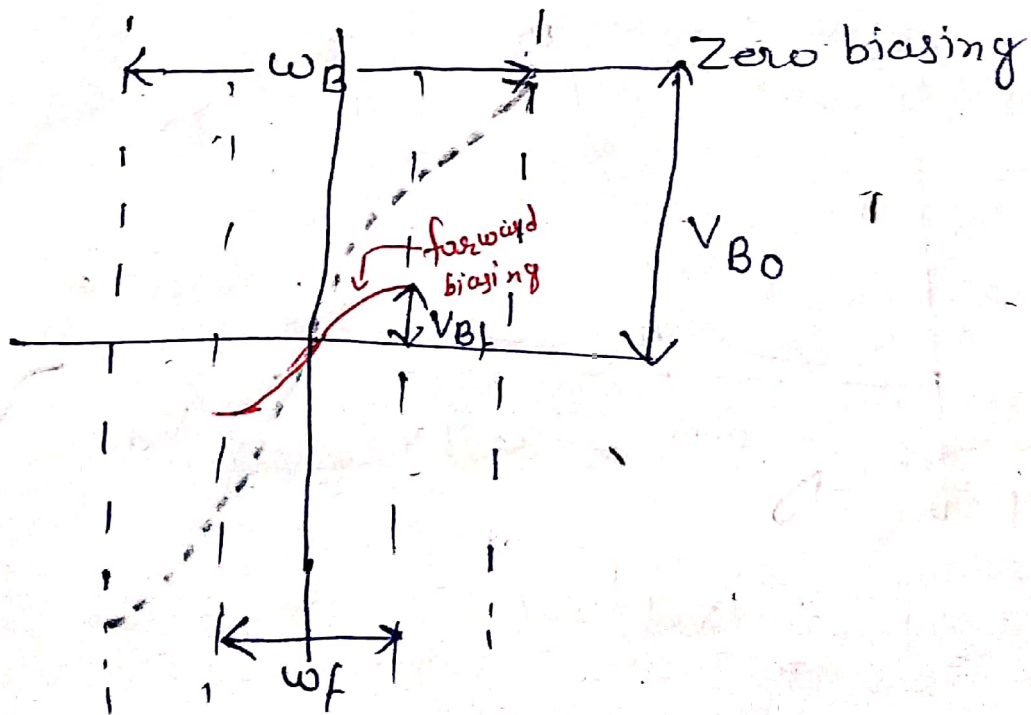 ωB
Zero biasing
forward
biasing
VBf
VB0
ωf